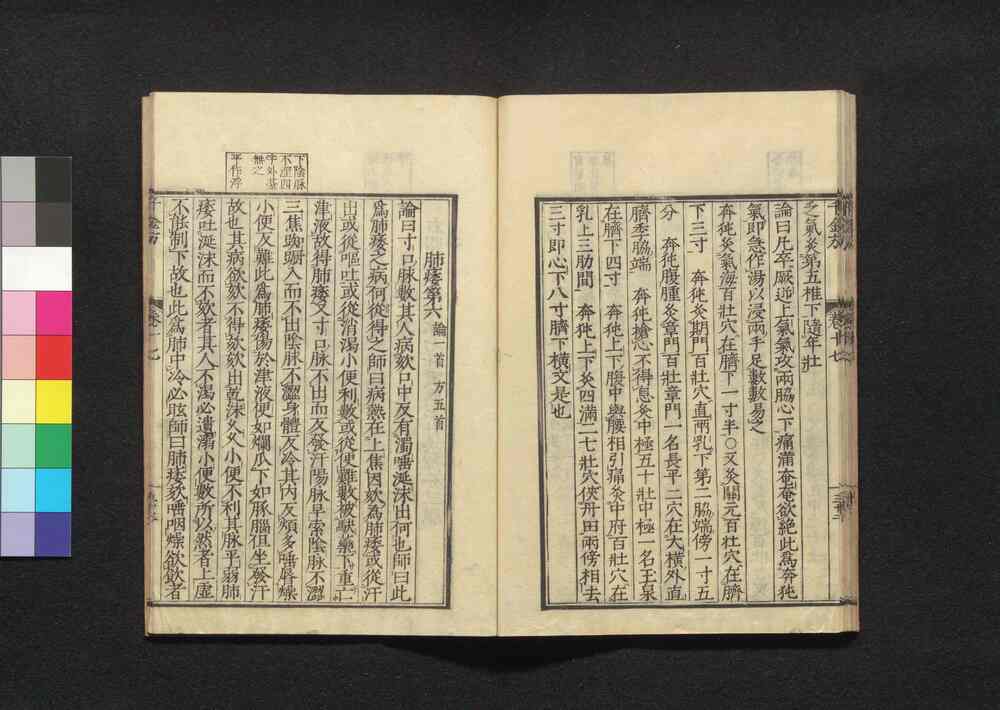 之氣灸第五椎下隨年壯
論曰凡卒厥逆上氣氣攻兩脇心下痛滿奄奄欲絕此爲奔㹠
氣即急作湯以浸兩手足數數易之
奔㹠灸氣海百壯穴在臍下一寸半○又灸關元百壯穴在臍
下三寸　奔㹠灸期門百壯穴直兩乳下第二脇端傍一寸五
分　奔㹠腹腫灸章門百壯章門一名長平二穴在大橫外直
臍季脇端　奔㹠搶心不得息灸中極五十壯中極一名玉泉
在臍下四寸　奔㹠上下腹中與腰相引痛灸中府百壯穴在
乳上三肋間　奔㹠上下灸四滿二七壯穴俠丹田兩傍相去
三寸即心下八寸臍下橫文是也
千金方
卷十七
下陰脉
不澀四
字外臺
無之
平作浮
肺痿第六 論一首 方五首
論曰寸口脉數其人病欬口中反有濁唾涎沫出何也師曰此
爲肺痿之病何從得之師曰病熱在上焦因欬爲肺痿或從汗
出或從嘔吐或從消渴小便利數或從便難數被駃藥下重亡
津液故得肺痿又寸口脉不出而反發汗陽脉早索陰脉不澀
三焦踟躕入而不出陰脉不澀身體反冷其內反煩多唾脣燥
小便反難此爲肺痿傷於津液便如爛瓜下如豚腦但坐發汗
故也其病欲欬不得欬欬出乾沫久久小便不利其脉平弱肺
痿吐涎沫而不欬者其人不渴必遺溺小便數所以然者上虛
不能制下故也此爲肺中冷必眩師曰肺痿欬唾咽燥欲飲者